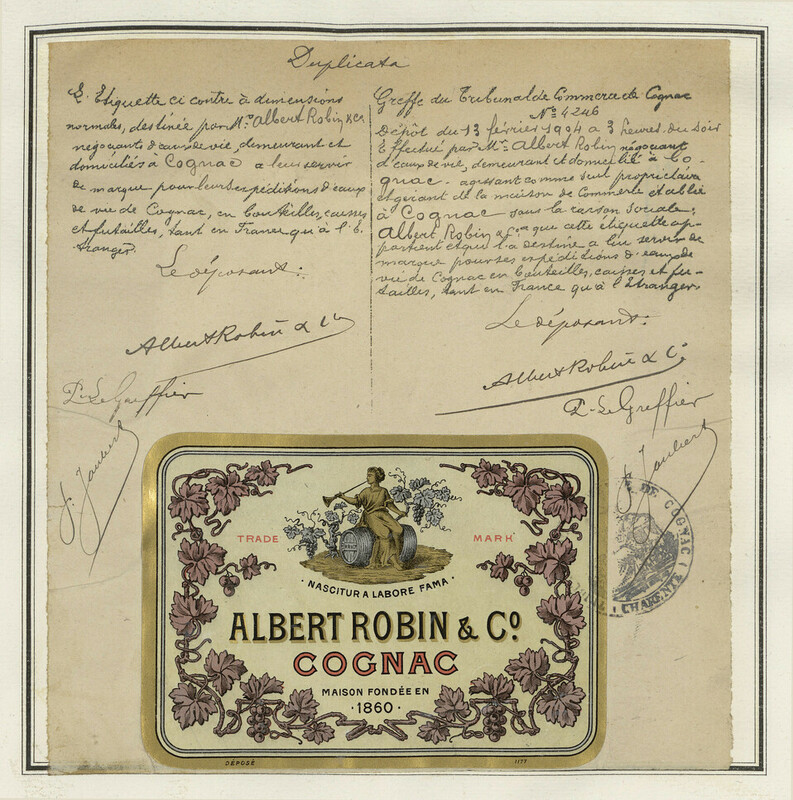 Duplicata
L'Etiquette ci contre à dimensions
normales, destinée par Mr. Albert Robin & Co
négociants d'eaux de vie, demeurant et
domiciliés à Cognac a leur servir
de marque pour leurs expéditions d'eaux
de vie de Cognac, en bouteilles, caisses
et futailles, tant en France qu'à l'E-
tranger.
Le déposant:
Albert Robin & Co
P. Le Greffier
J. Jaubert
Greffe du Tribunal de Commerce de Cognac
No 4246
Dépôt du 13 février 1904 a 3 heures du soir
Effectué par Mr. Albert Robin négociant
d'eaux de vie, demeurant et domicilié à Co-
gnac - agissant comme seul propriétaire
et gérant de la maison de Commerce établie
à Cognac sous la raison sociale;
Albert Robin & Co a que cette étiquette ap-
partient et qu'il a destine a lui servir de
marque pour ses expéditions d'eaux de
vie de Cognac en bouteilles, caisses et fu-
tailles, tant en France qu'à l'Etranger.
Le déposant:
Albert Robin & Co.
P. Le Greffier
J. Jaubert
DE COGNAC
CHARENTE
TRADE MARK
COGNAC
· NASCITUR A LABORE FAMA ·
ALBERT ROBIN & Co
COGNAC
MAISON FONDÉE EN
· 1860 ·
DÉPOSÉ 1177